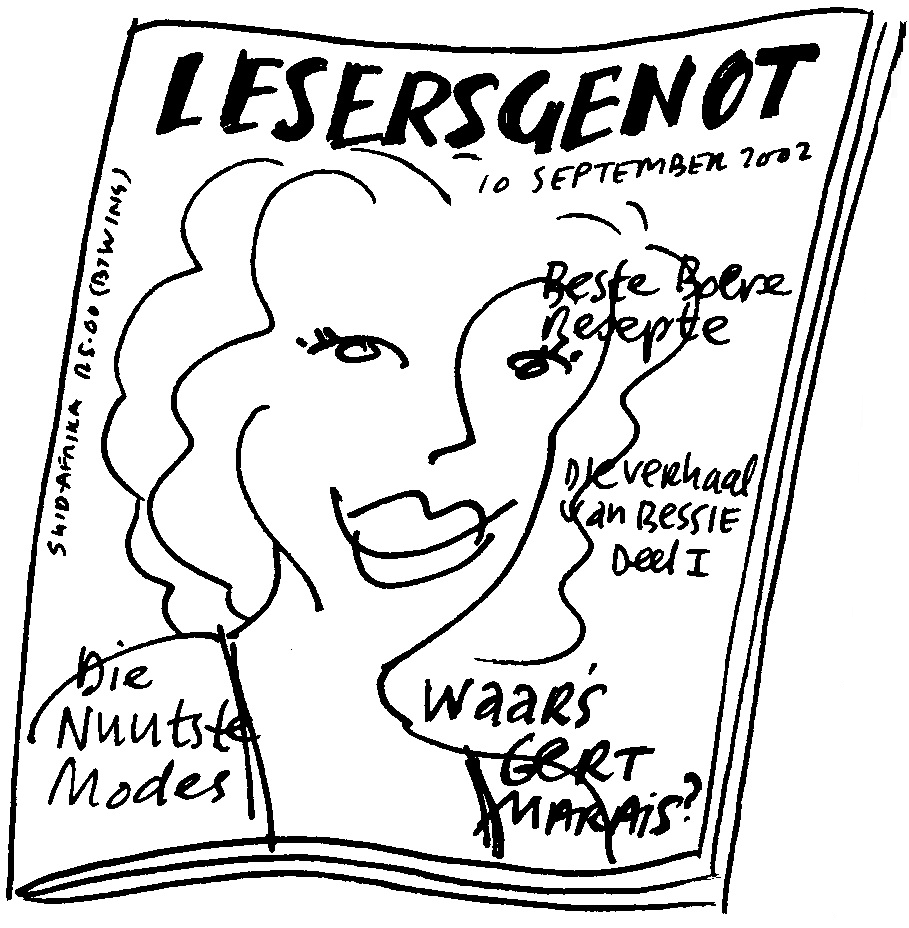 LESERSGENOT
10 SEPTEMBER 2002
SUID-AFRIKA R5.00 (BTWING)
Beste Boere
Resepte
Die verhaal
van BESSIE
Deel I
Die
Nuutste
Modes
Waar's
GERT
MARAIS?